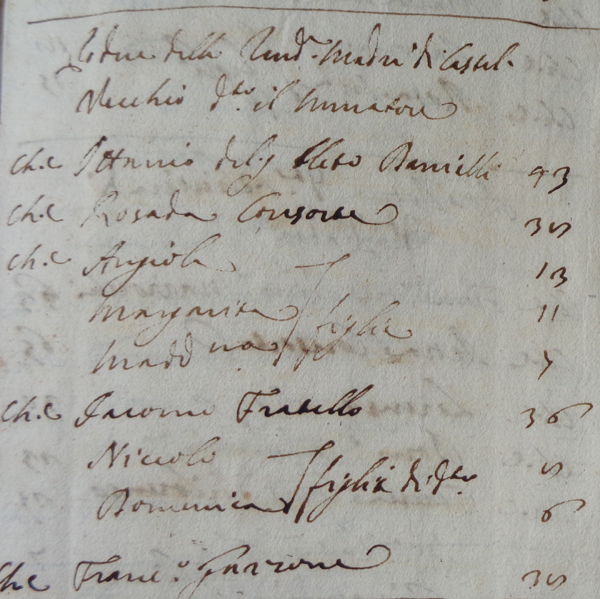 Podere delle Rnde. Madri di Castel-
Vecchio dto. il Muratore
ch.e Antonio del q Bartelli 43
ch.e Rosada Consorte 35
ch.e Angiola 13
Margarita figlie 11
Madd.na 7
ch.e Iacomo Fratello 36
Niccolo 5
Domenica figli di dto. 6
che Franc.o Garzone 35